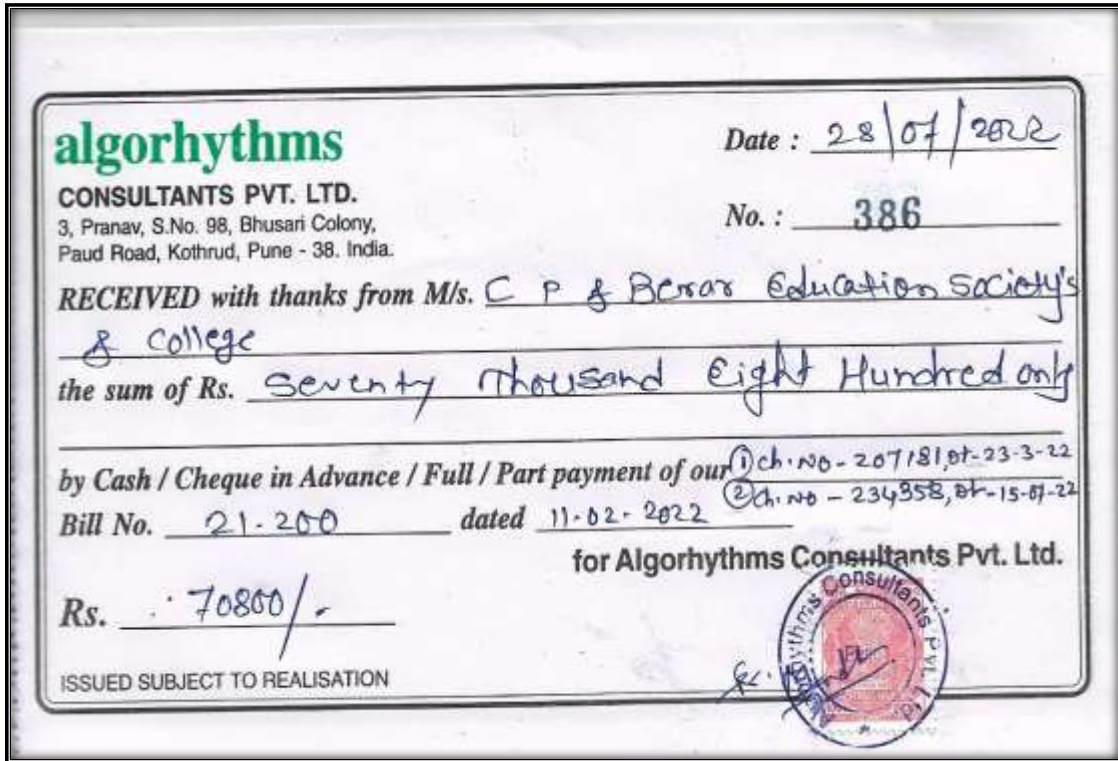 algorhythms
CONSULTANTS PVT. LTD.
3, Pranav, S.No. 98, Bhusari Colony,
Paud Road, Kothrud, Pune - 38. India.
Date : 28/07/2022
No. : 386
RECEIVED with thanks from M/s. C P & Berar Education Society's
& College
the sum of Rs. Seventy Thousand Eight Hundred only
by Cash / Cheque in Advance / Full / Part payment of our ① ch. No - 207181, dt - 23-3-22
② ch. No - 234358, dt - 15-07-22
Bill No. 21-200 dated 11-02-2022
for Algorhythms Consultants Pvt. Ltd.
Rs. 70800/-
ISSUED SUBJECT TO REALISATION
Algorhythms Consultants Pvt. Ltd